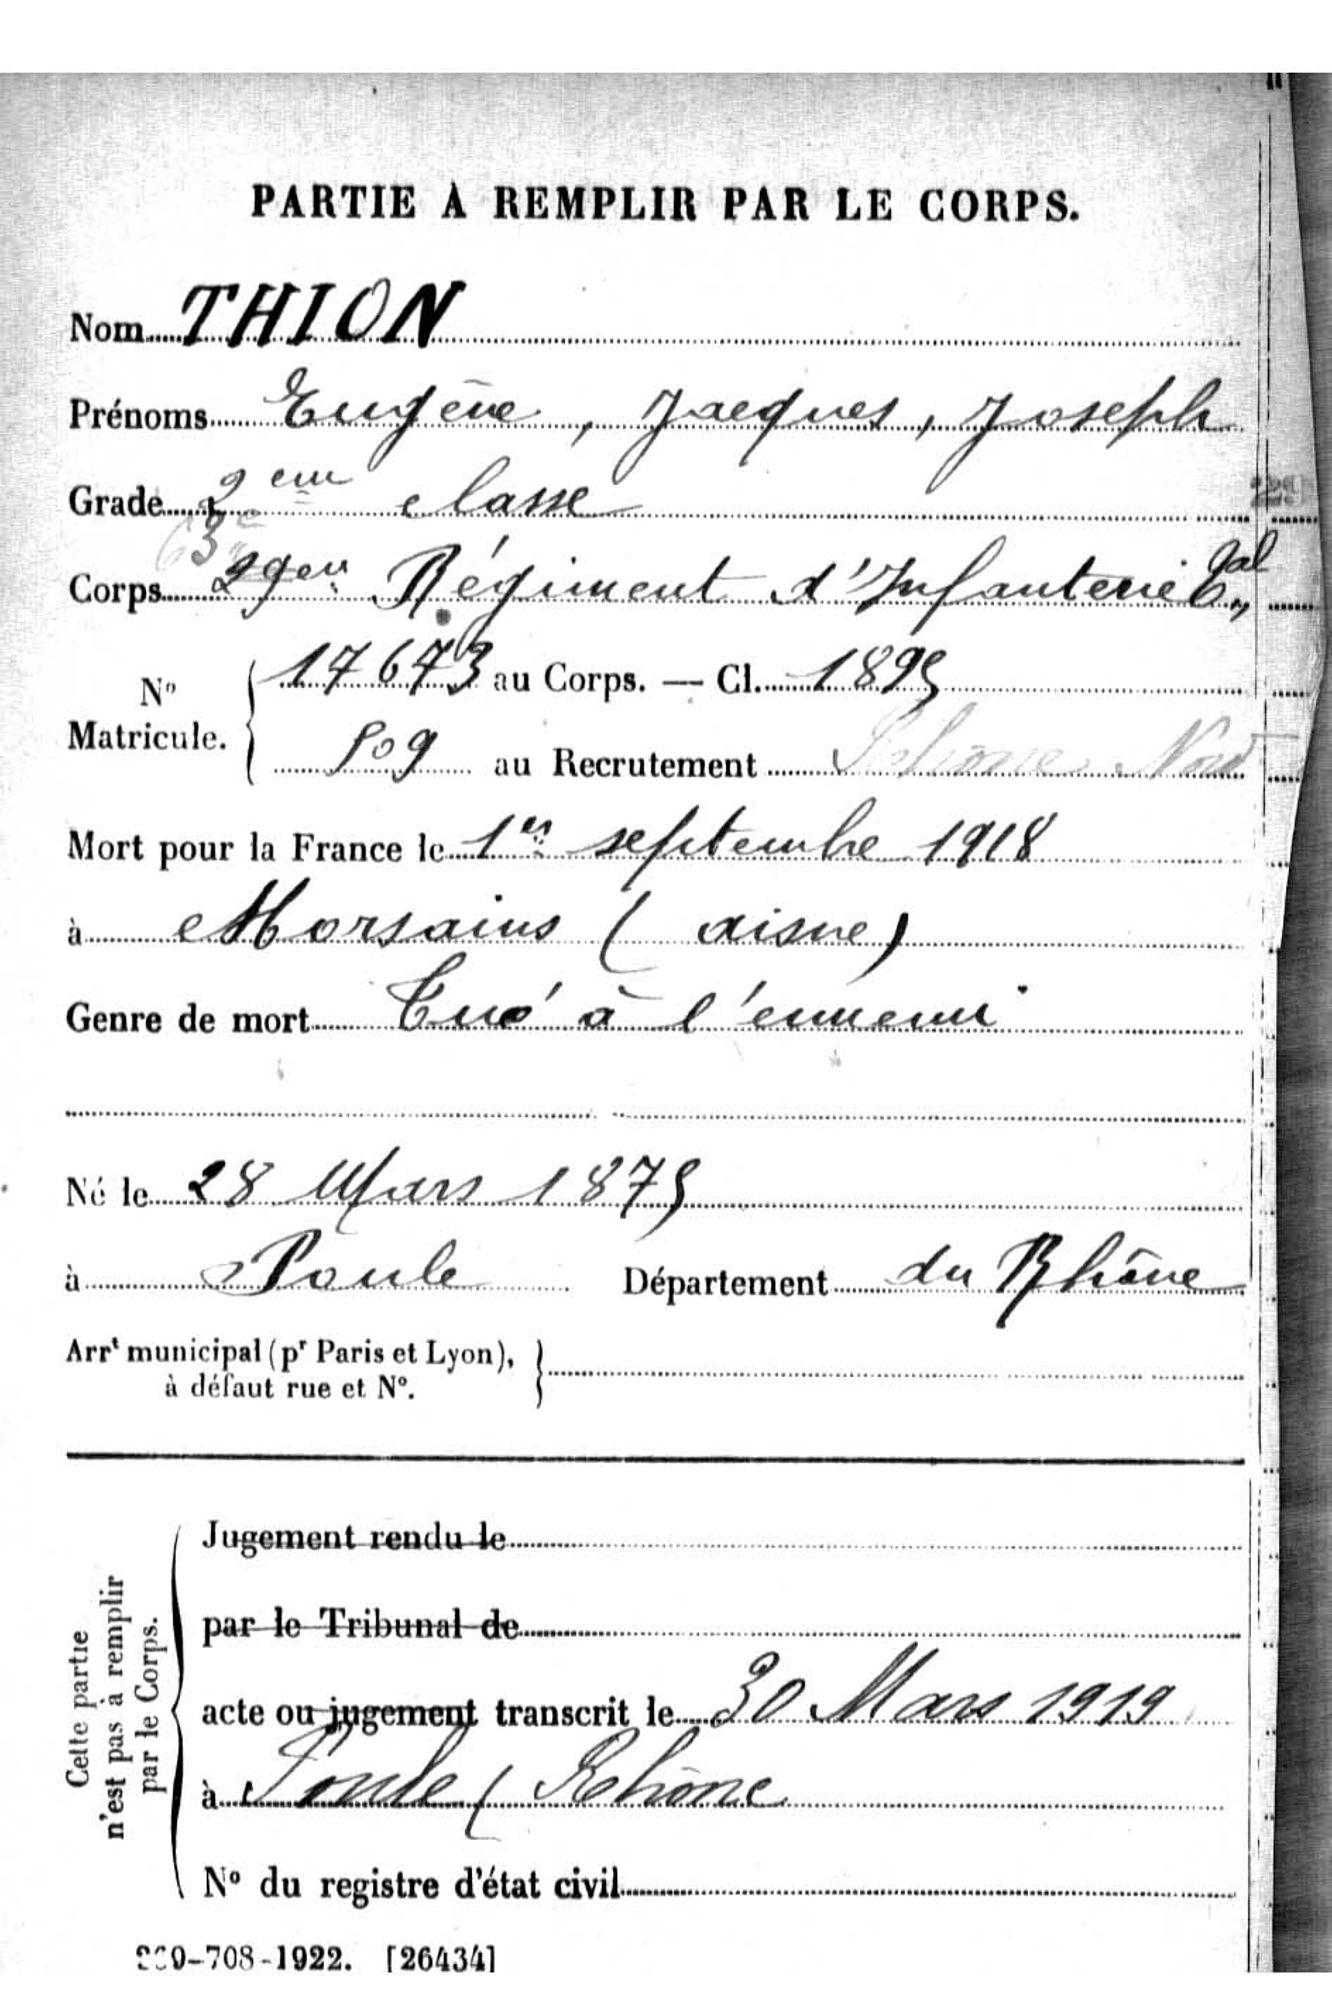 PARTIE À REMPLIR PAR LE CORPS.
Nom THION
Prénoms Eugène, Jacques, Joseph
Grade 2eme classe
63e
Corps 29em Régiment d'Infanterie Cal
N° Matricule. 17673 au Corps. — Cl. 1895
509 au Recrutement Rhône Nord
Mort pour la France le 1er septembre 1918
à Morsains (aisne)
Genre de mort Tué à l'ennemi
Né le 28 Mars 1875
à Poule Département du Rhône
Arrt municipal (pr Paris et Lyon),
à défaut rue et N°.
Jugement rendu le
par le Tribunal de
acte ou jugement transcrit le 30 Mars 1919
à Poule (Rhône
N° du registre d'état civil
Cette partie
n'est pas à remplir
par le Corps.
-708-1922. [26434]